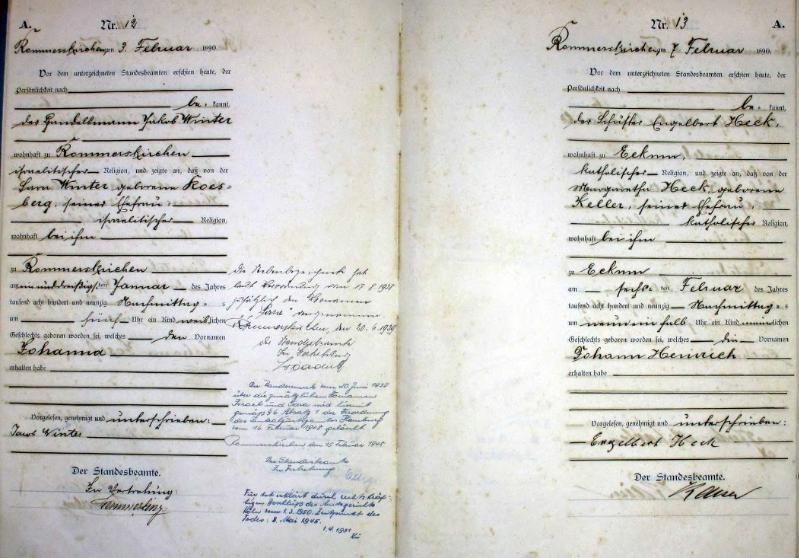 A. Nr. 12
Rommerskirchen am 3. Februar 1890.
Vor dem unterzeichneten Standesbeamten erschien heute, der
Persönlichkeit nach
be- kannt,
der Handelsmann Jakob Winter
wohnhaft zu Rommerskirchen
israelitischer Religion, und zeigte an, daß von der
Sara Winter, geborene Roes-
berg, seiner Ehefrau,
israelitischer Religion,
wohnhaft bei ihm
zu Rommerskirchen
am einunddreißigsten Januar des Jahres
tausend acht hundert und neunzig Nachmittag- s
um Uhr ein Kind weiblichen
Geschlechts geboren worden sei, welches den Vornamen
Johanna
erhalten habe
Vorgelesen, genehmigt und unterschrieben:
Winter
Der Standesbeamte.
In Vertretung
zusätzlich den Vornamen
"Sara" angenommen
Rommerskirchen, den 1939
Der Standesbeamte
In Vertretung
über die zusätzlichen Vornamen
Israel und Sara wird hiermit
gemäß der Verordnung
in Hamburg
vom 16. Februar 1948 gelöscht
Rommerskirchen den 15. Februar 1948
Der Standesbeamte
In Vertretung
Für tot erklärt durch rechtskräf-
tigen Beschluß des Amtsgerichts
Köln vom 1.3.1950. Zeitpunkt des
Todes: 8. Mai 1945.
1.4.1951
Nr. 13 A.
Rommerskirchen am 7. Februar 1890.
Vor dem unterzeichneten Standesbeamten erschien heute, der
Persönlichkeit nach
be- kannt,
der Engelbert Heck,
wohnhaft zu Eckum,
katholischer Religion, und zeigte an, daß von der
Margaretha Heck, geborene
Keller, seiner Ehefrau,
katholischer Religion,
wohnhaft bei ihm
zu Eckum
am sechsten Februar des Jahres
tausend acht hundert und neunzig Nachmittag- s
um neun ein halb Uhr ein Kind männlichen
Geschlechts geboren worden sei, welches die Vornamen
Johann Heinrich
erhalten habe
Vorgelesen, genehmigt und unterschrieben:
Engelbert Heck
Der Standesbeamte.